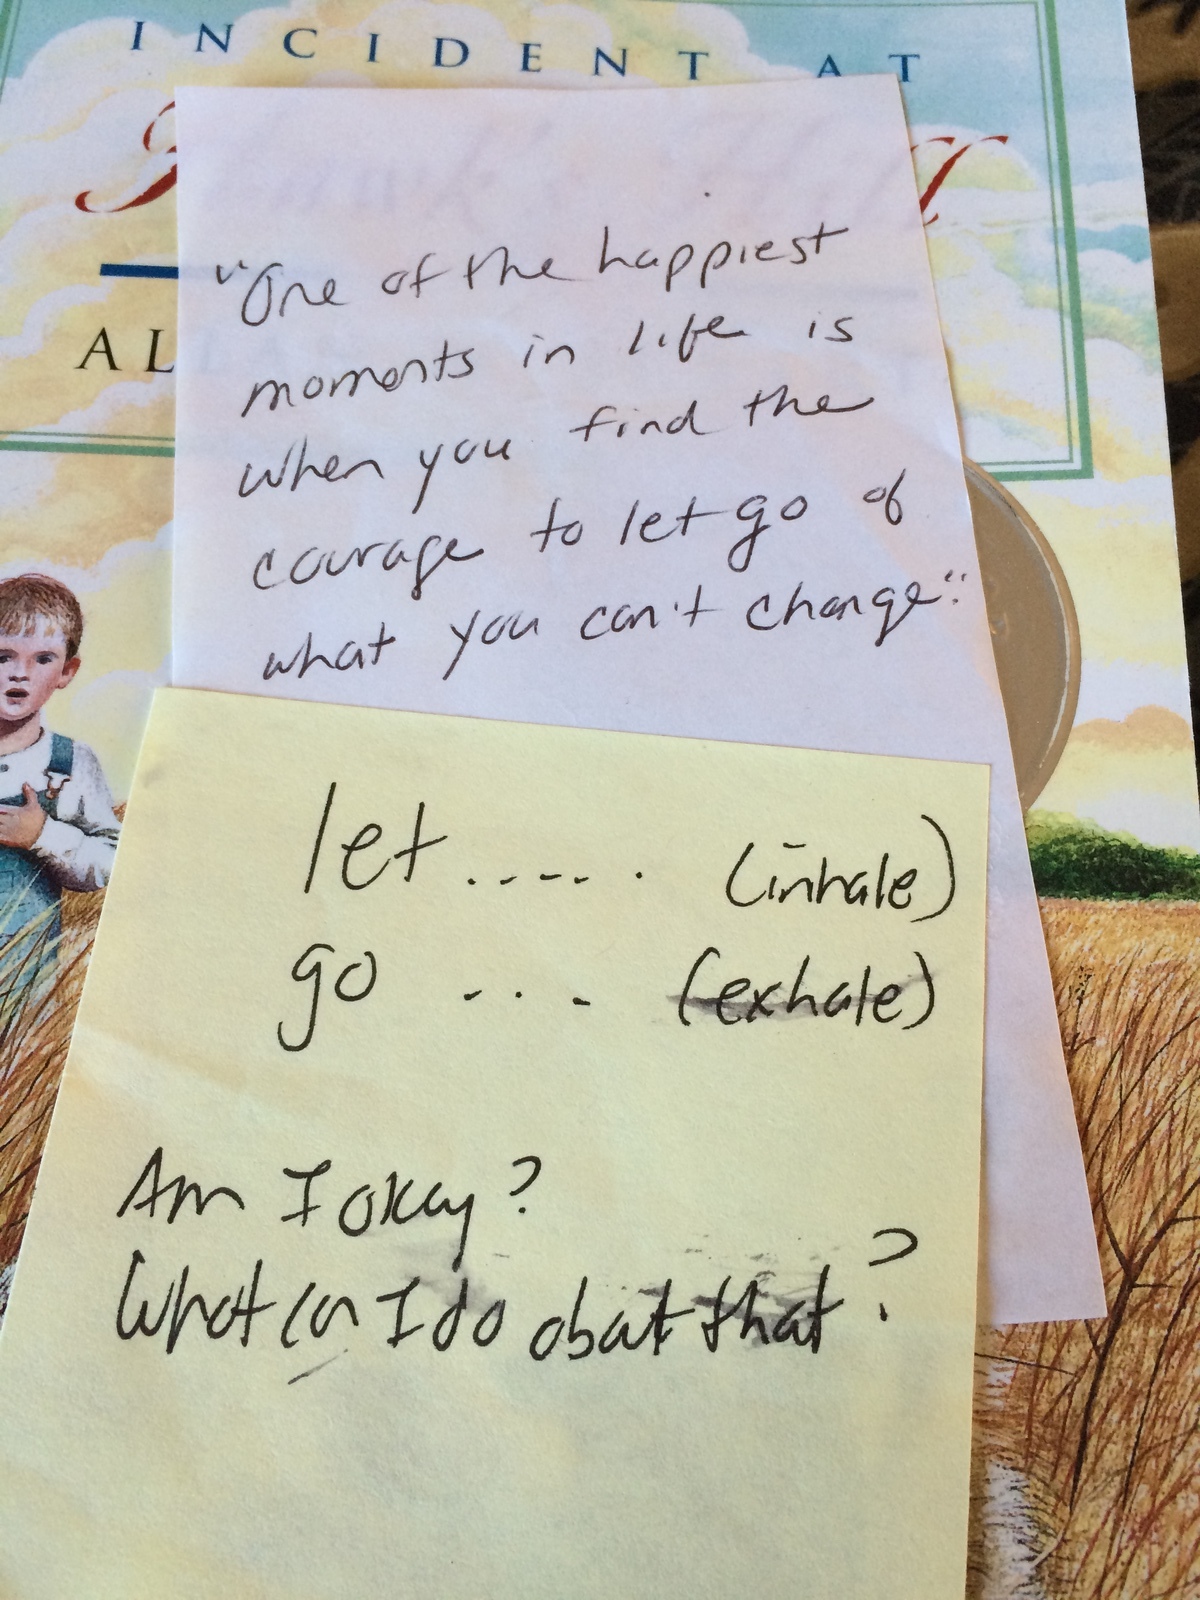 INCIDENT AT
AL
"One of the happiest
moments in life is
when you find the
courage to let go of
what you can't change".
let...... (inhale)
go .... (exhale)
Am I okay?
What can I do about that?